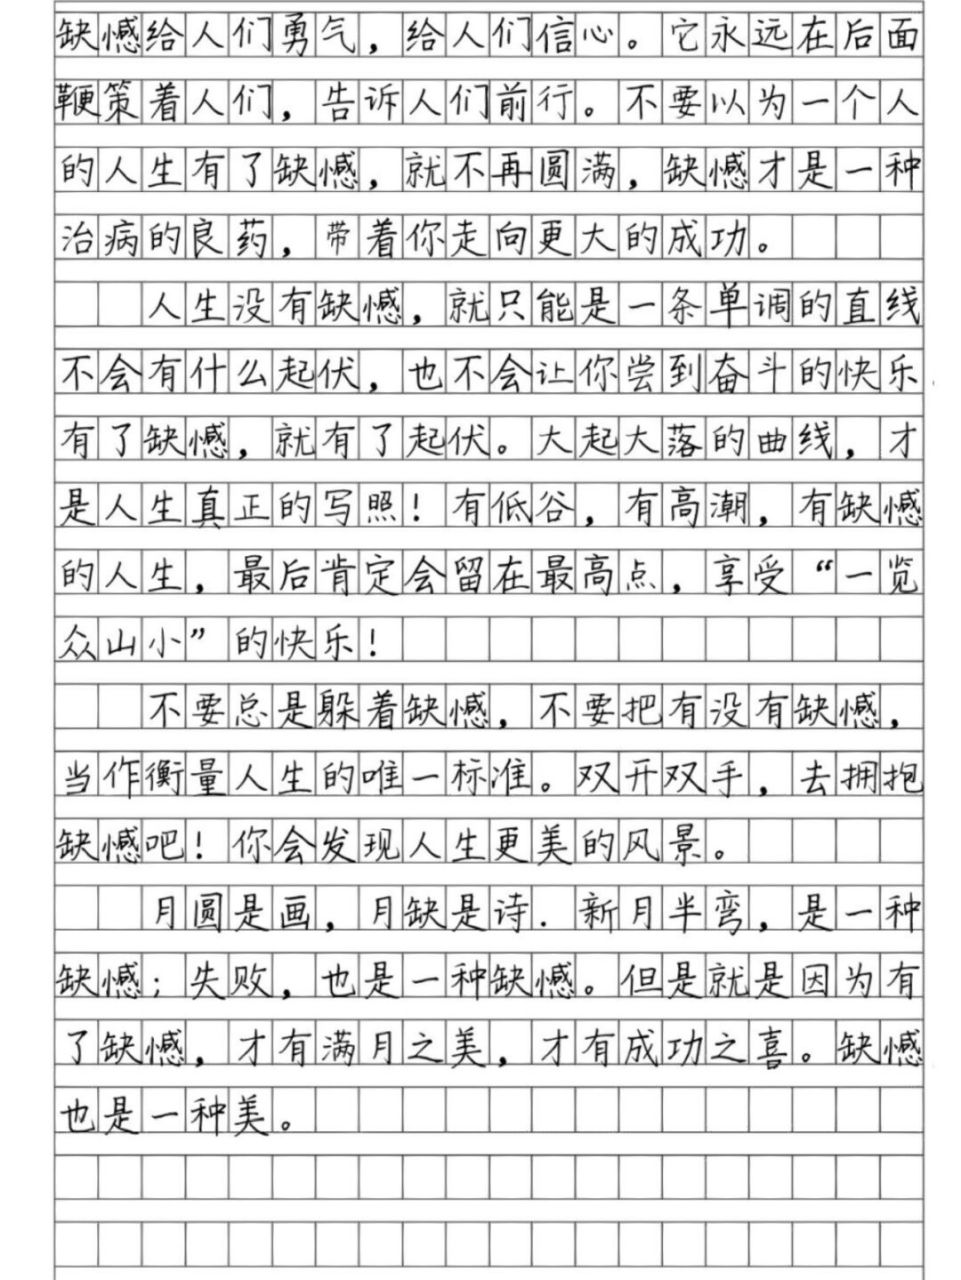 缺憾给人们勇气，给人们信心。它永远在后面
鞭策着人们，告诉人们前行。不要以为一个人
的人生有了缺憾，就不再圆满，缺憾才是一种
治病的良药，带着你走向更大的成功。
人生没有缺憾，就只能是一条单调的直线
不会有什么起伏，也不会让你尝到奋斗的快乐.
有了缺憾，就有了起伏。大起大落的曲线，才
是人生真正的写照！有低谷，有高潮，有缺憾
的人生，最后肯定会留在最高点，享受“一览
众山小”的快乐！
不要总是躲着缺憾，不要把有没有缺憾，
当作衡量人生的唯一标准。双开双手，去拥抱
缺憾吧！你会发现人生更美的风景。
月圆是画，月缺是诗.新月半弯，是一种
缺憾；失败，也是一种缺憾。但是就是因为有
了缺憾，才有满月之美，才有成功之喜。缺憾
也是一种美。